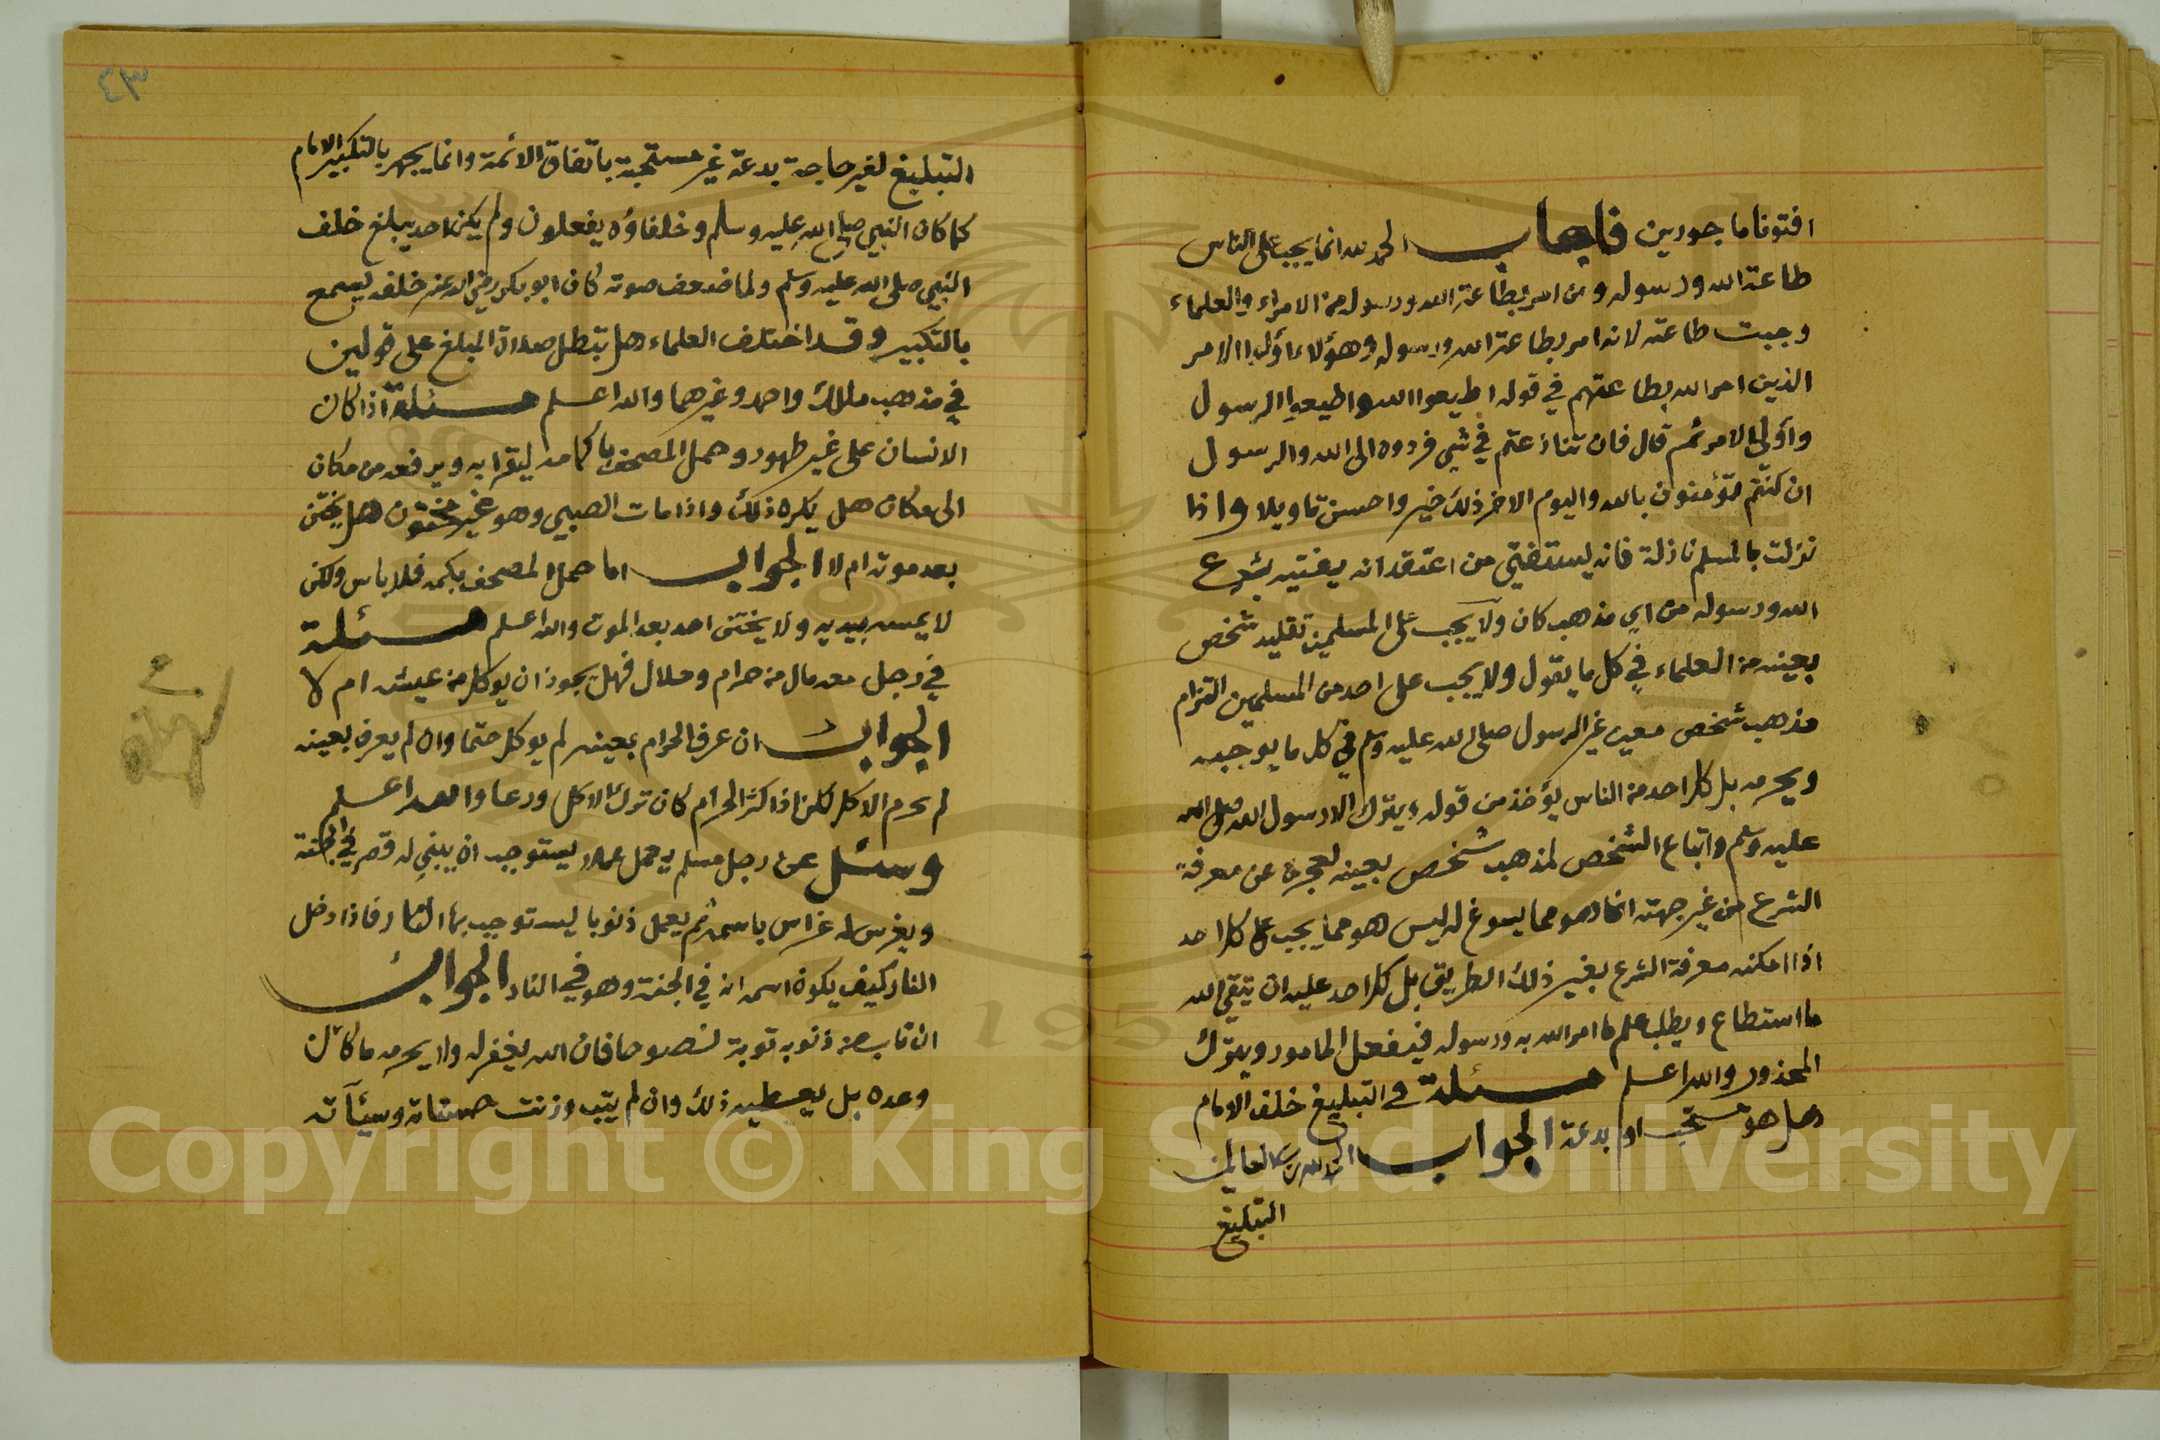 افتونا ماجورين فاجاب الحمد لله انما يجب على الناس
طاعة الله ورسوله ومن امر بطاعة الله ورسوله من الامراء والعلماء
وجبت طاعته لانه امر بطاعة الله ورسوله وهؤلاء أولوا الامر
الذين امر الله بطاعتهم في قوله اطيعوا الله واطيعوا الرسول
وأولى الامر ثم قال فان تنازعتم في شي فردوه الى الله والرسول
ان كنتم تؤمنون بالله واليوم الاخر ذلك خير واحسن تاويلا واذا
نزلت بالمسلم نازلة فانه يستفتي من اعتقد انه يفتيه بشرع
الله ورسوله من اي مذهب كان ولا يجب على المسلمين تقليد شخص
بعينه من العلماء في كل ما يقول ولا يجب على احد من المسلمين التزام
مذهب شخص معين غير الرسول صلى الله عليه وسلم في كل ما يوجبه
ويحرمه بل كل احد من الناس يؤخذ من قوله ويترك الا رسول الله صلى الله
عليه وسلم واتباع الشخص لمذهب شخص بعينه لعجزه عن معرفة
الشرع من غير جهته انما هو مما يسوغ له ليس هو مما يجب على كل احد
اذا امكنه معرفة الشرع بغير ذلك الطريق بل كل احد عليه ان يتقي الله
ما استطاع ويطلب علم ما امر الله به ورسوله فيفعل المامور ويترك
المحذور والله اعلم مسئلة في التبليغ خلف الامام
هل هو مستحب او بدعة الجواب الحمد لله رب العالمين
التبليغ
٤٣
التبليغ لغير حاجة بدعة غير مستحبة باتفاق الائمة وانما يجهر بالتكبير الامام
كما كان النبي صلى الله عليه وسلم وخلفاؤه يفعلون ولم يكن احد يبلغ خلف
النبي صلى الله عليه وسلم ولما ضعف صوته كان ابو بكر رضي الله عنه خلفه يسمع
بالتكبير وقد اختلف العلماء هل تبطل صلاة المبلغ على قولين
في مذهب مالك واحمد وغيرهما والله اعلم مسئلة اذا كان
الانسان على غير طهور وحمل المصحف باكمامه ليقرا به ويرفعه من مكان
الى مكان هل يكره ذلك واذا مات الصبي وهو غير مختون هل يختن
بعد موته ام لا الجواب اما حمل المصحف بكمه فلا باس ولكن
لا يمسه بيديه ولا يختن احد بعد الموت والله اعلم مسئلة
في رجل معه مال من حرام وحلال فهل يجوز ان يوكل من عيشه ام لا
الجواب ان عرف الحرام بعينه لم يوكل حتما وان لم يعرف بعينه
لم يحرم الاكل لكن اذا كثر الحرام كان ترك الاكل ورعا والله اعلم
وسئل عن رجل مسلم يعمل عملا يستوجب ان يبنى له قصر في الجنة
ويغرس له غراس باسمه ثم يعمل ذنوبا يستوجب بها النار فاذا دخل
النار كيف يكون اسمه انه في الجنة وهو في النار الجواب
ان تاب من ذنوبه توبة نصوحا فان الله يغفر له ولا يحرمه ما كان
وعده بل يعطيه ذلك وان لم يتب وزنت حسناته وسيئاته
Copyright © King Saud University